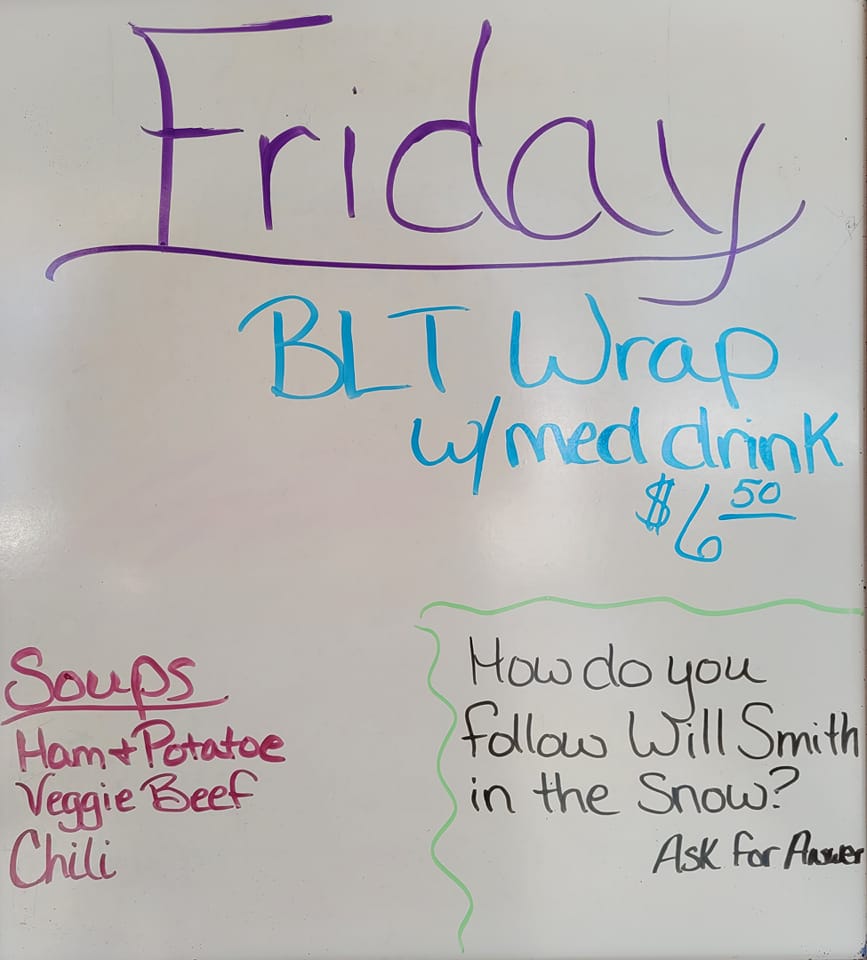 Friday
BLT Wrap
w/med drink
$6 50
Soups
Ham + Potatoe
Veggie Beef
Chili
How do you
follow Will Smith
in the Snow?
Ask for Answer